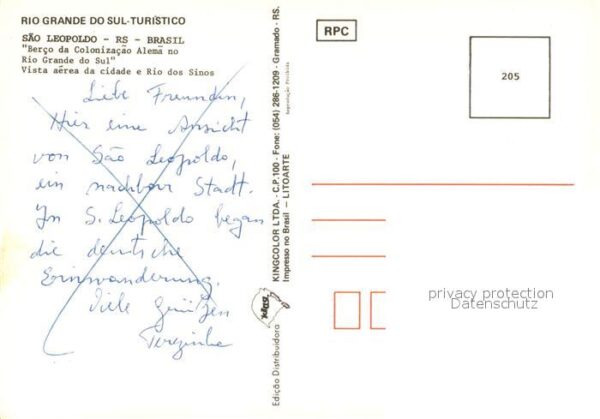 RIO GRANDE DO SUL-TURÍSTICO
SÃO LEOPOLDO - RS - BRASIL
"Berço da Colonização Alemã no
Rio Grande do Sul"
Vista aérea da cidade e Rio dos Sinos
Liebe Freundin,
Hier eine Ansicht
von São Leopoldo,
ein nachbar Stadt.
In S. Leopoldo began
die deutsche
Einwanderung.
Viele Grüßen
Terezinha
Edição Distribuidora
KINGCOLOR LTDA. - C.P. 100 - Fone: (054) 286-1209 - Gramado - RS.
Impresso no Brasil - LITOARTE
Reprodução Proibida
RPC
205
privacy protection
Datenschutz